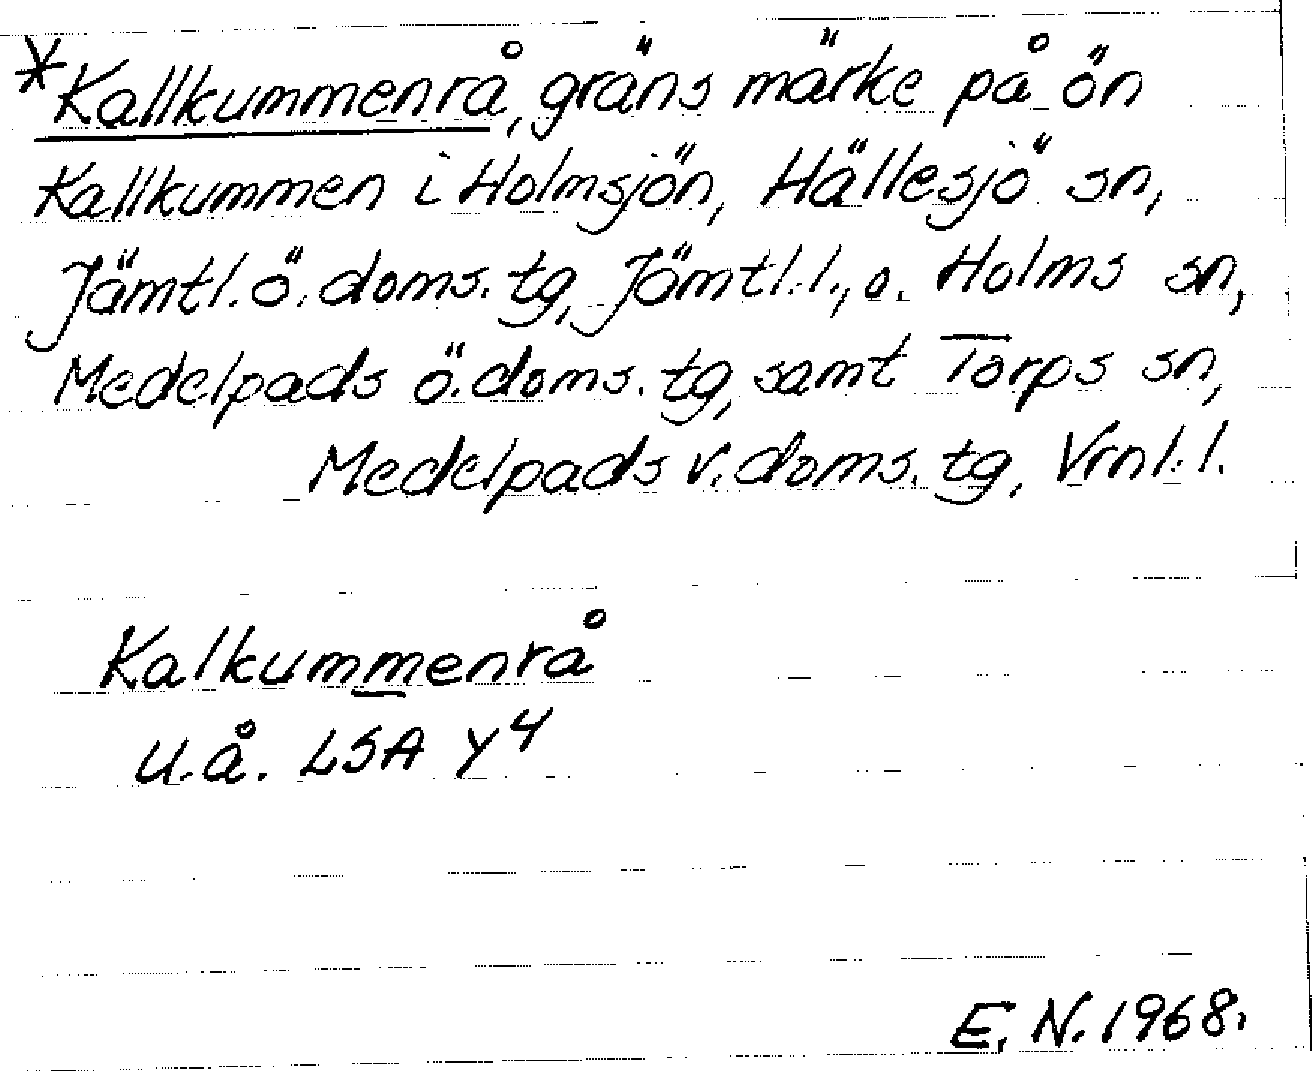 *Kallkummenrå, gräns märke på ön
Kallkummen i Holmsjön, Hällesjö sn,
Jämtl. ö. doms. tg, Jämtl. l., o. Holms sn,
Medelpads ö. doms. tg, samt Torps sn,
Medelpads v. doms. tg, Vrnl. l.
Kalkummenrå
u.å. LSA Y4
E. N. 1968.